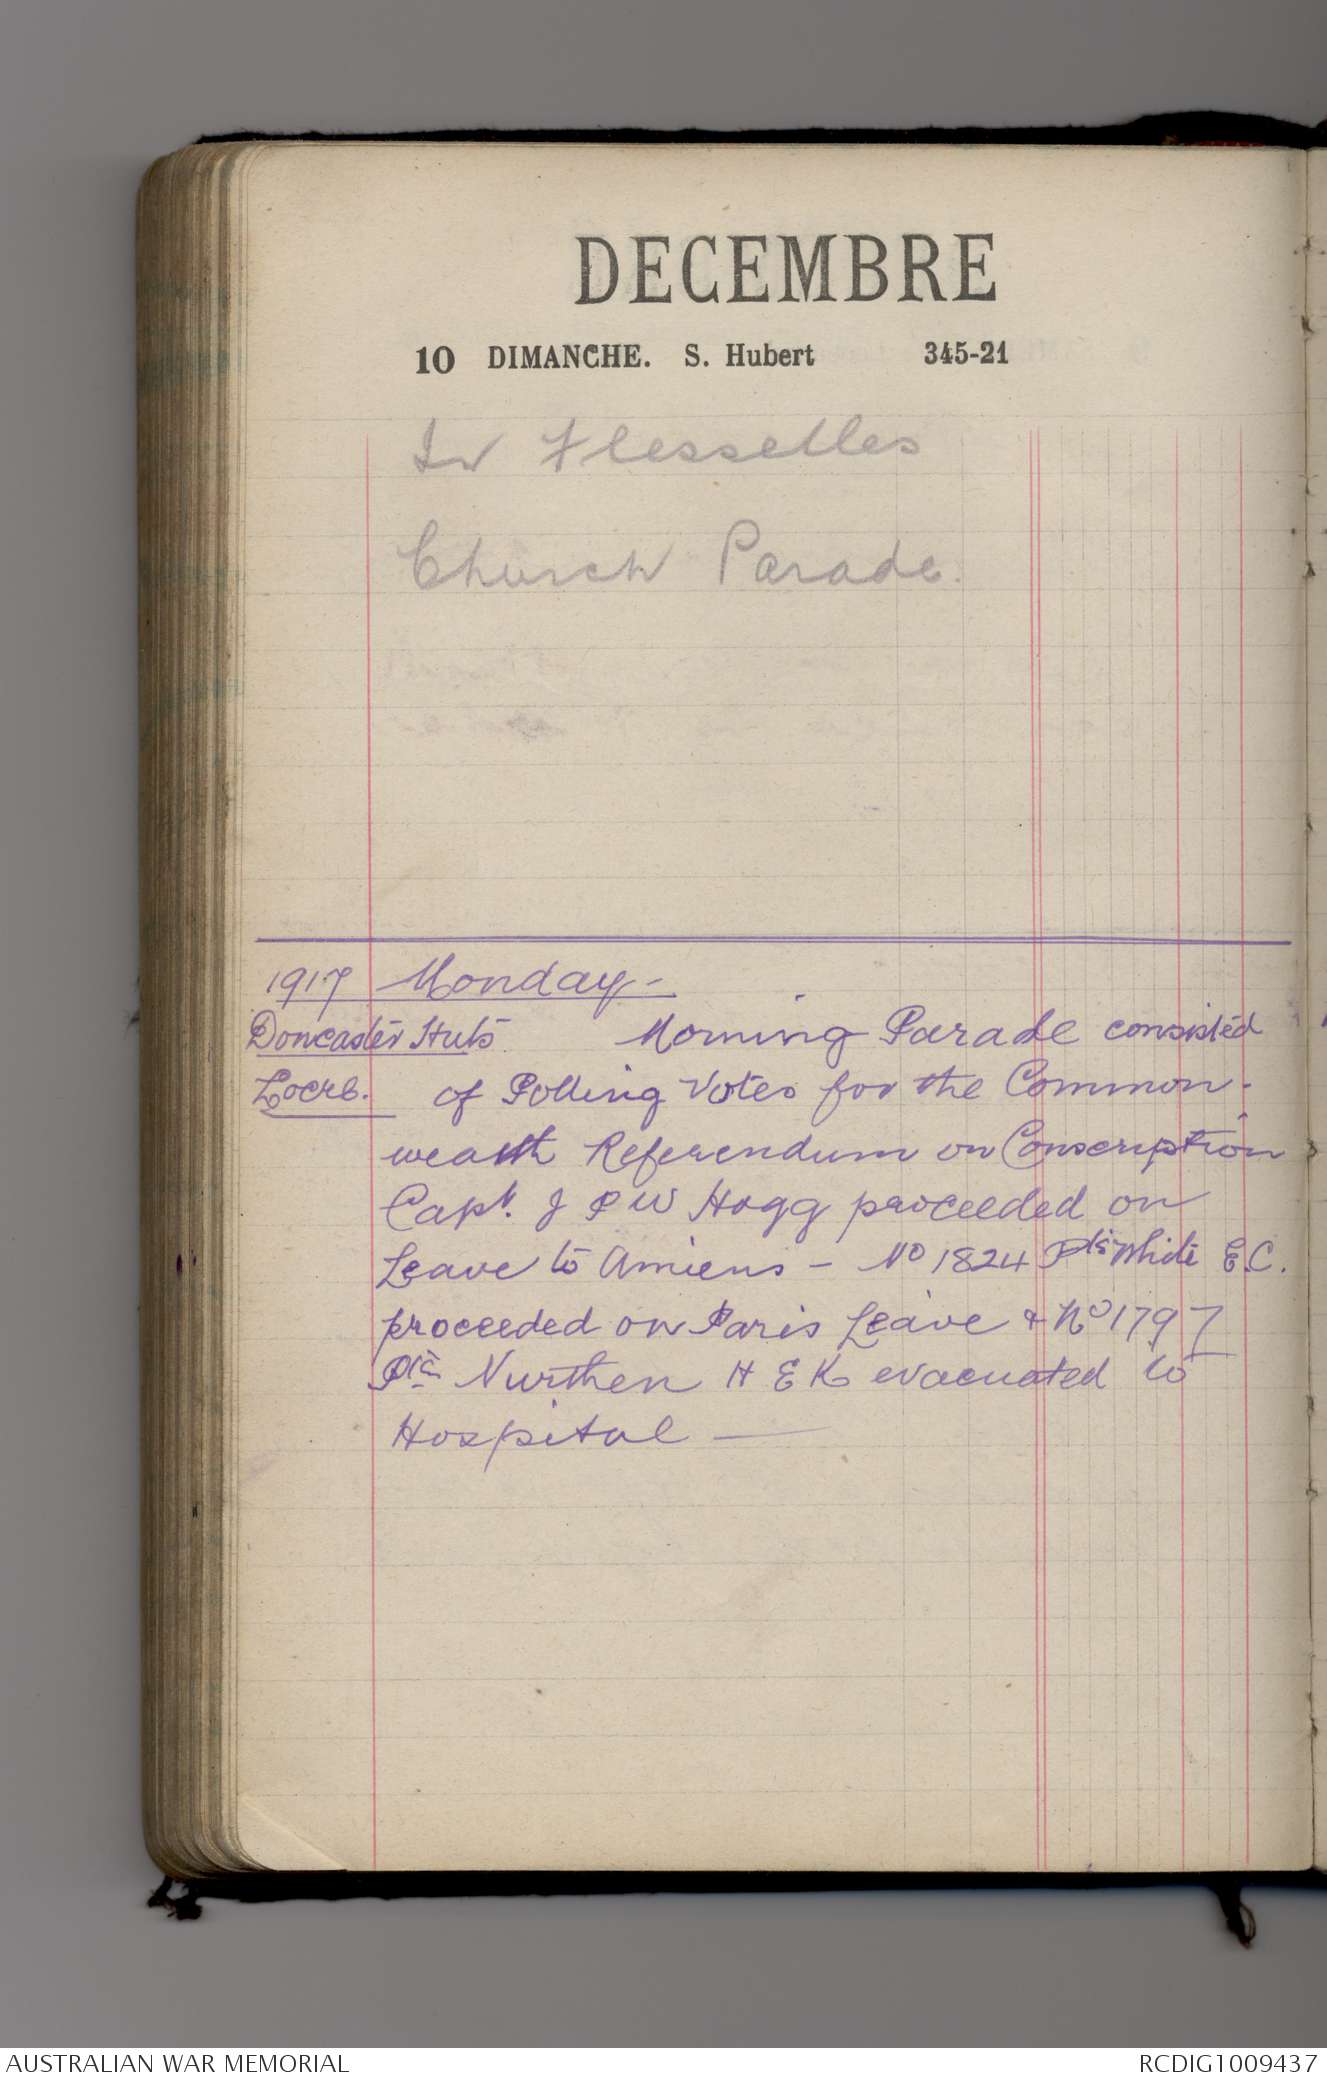 DECEMBRE
10 DIMANCHE. S. Hubert 345-21
In Flesselles
Church Parade.
1917 Monday -
Doncaster Huts Morning Parade consisted
Locre. of Polling Votes for the Common-
wealth Referendum on Conscription
Capt. J P W Hogg proceeded on
Leave to Amiens - No 1824 Pte White E.C.
proceeded on Paris Leave & No 1797
Pte Nurthen H E K evacuated to
Hospital —
AUSTRALIAN WAR MEMORIAL
RCDIG1009437